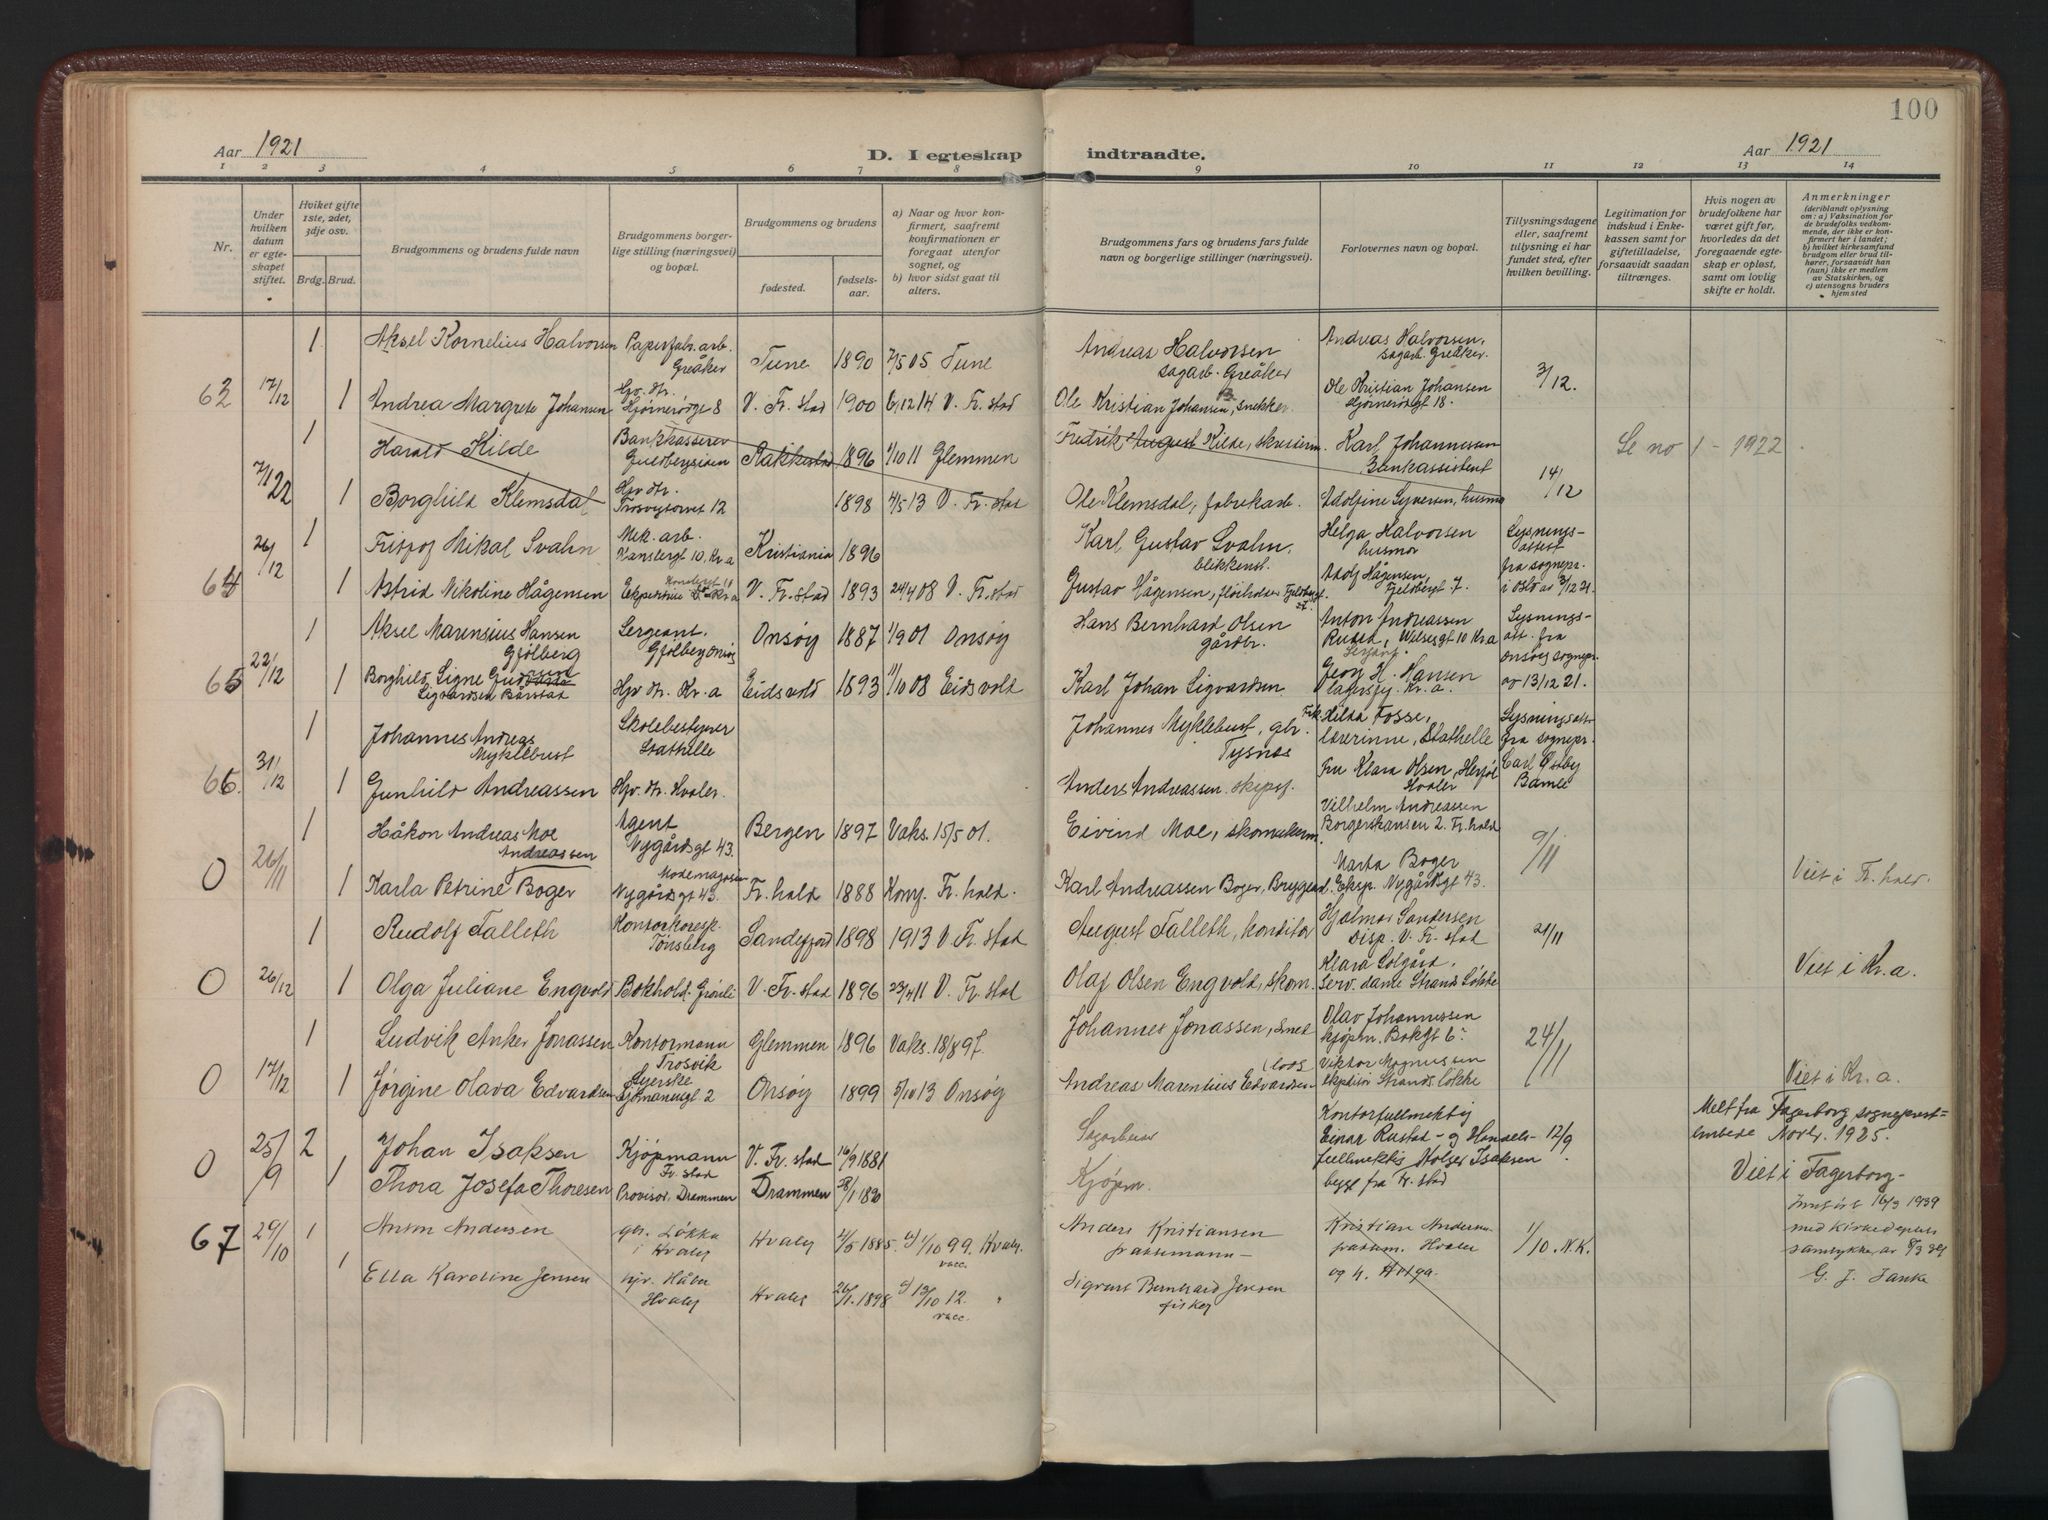 100
Aar 1921 D. I egteskap indtraadte. Aar 1921
1 2 3 4 5 6 7 8 9 10 11 12 13 14
Nr.
Under hvilken datum er egteskapet stiftet.
Hviket gifte 1ste, 2det, 3dje osv.
Brdg. Brud.
Brudgommens og brudens fulde navn
Brudgommens borgerlige stilling (næringsvei) og bopæl.
Brudgommens og brudens
fødested.
fødselsaar.
a) Naar og hvor konfirmert, saafremt konfirmationen er foregaat utenfor sognet, og
b) hvor sidst gaat til alters.
Brudgommens fars og brudens fars fulde navn og borgerlige stillinger (næringsvei).
Forlovernes navn og bopæl.
Tillysningsdagene eller, saafremt tillysning ei har fundet sted, efter hvilken bevilling.
Legitimation for indskud i Enkekassen samt for giftetilladelse, forsaavidt saadan tiltrænges.
Hvis nogen av brudefolkene har været gift før, hvorledes da det foregaaende egteskap er opløst, samt om lovlig skifte er holdt.
Anmerkninger
(deriblandt oplysning om: a) Vaksination for de brudefolks vedkommende, der ikke er konfirmert her i landet; b) hvilket kirkesamfund brudgom eller brud tilhører, forsaavidt han (hun) ikke er medlem av Statskirken, og c) utensogns bruders hjemsted
1 Aksel Kornelius Halvorsen Papirfabr. arb. Greåker Tune 1890 7/5 05 Tune Andreas Halvorsen sagarb. Greåker Andreas Halvorsen, sagarb. Greåker.
62 17/12 1 Andrea Margrete Johansen Hjørnerødgt 8 V. Fr. stad 1900 6/12 14 V. Fr. stad Ole Kristian Johansen, snekker. Ole Kristian Johansen Hjørnerødgt 18. 3/12.
1 Harald Kilde Bankkasserer Guldbergsiden Rakkestad 1896 1/10 11 Glemmen Fredrik August Kilde, Karl Johannesen Bankassistent Se no 1 - 1922
7/1 22 1 Borghild Klemsdal Hpv. dtr. Trosvigtorvet 12 1898 4/5 13 V. Fr. stad Ole Klemsdal, fabrikarb. Adolfine Syversen, husmor 14/12
1 Fritjof Mikal Svahn Mek. arb. Kr.a Kristiania 1896 Karl Gustav Svahn, blikkensl. Helga Halvorsen husmor Lysnings-attest
26/12 64 1 Astrid Nikoline Hågensen Ekspeditrise Kr a V. Fr. stad 1893 24/4 08 V. Fr. stad Gustav Hågensen, Adolf Hågensen, Fjeldbergt 7. fra sognepr. i Oslo av 3/12 21.
1 Aksel Marensius Hansen Gjølberg Sergeant, Gjølberg Onsøy Onsøy 1887 1/9 01 Onsøy Hans Bernhard Olsen gårdbr. Anton Andreassen Rustad, Welsegt 10 Kr.a Sergeant. Lysnings-att. fra Onsøy sognepr.
65 22/12 1 Borghild Signe Sigvardsen Bårstad Hpv. dtr. Kr. a Eidsvold 1893 11/10 08 Eidsvold Karl Johan Sigvardsen Georg H. Hansen Kr. a. av 13/12 21.
1 Johannes Andreas Myklebust Skolebestyrer Stathelle Johannes Myklebust, gbr. Tysnes Frk. Hilda Fosse, lærerinne, Stathelle Lysningsatt. fra sognepr.
66. 31/12 1 Gunhild Andreassen Hpv. dtr. Hvaler. Anders Andreassen. skipsf. Fru Klara Olsen, Herføl Hvaler Carl Østby Bamle
1 Håkon Andreas Moe Andreassen Agent Nygårdsgt 43. Bergen 1897 Vaks. 15/5 01. Eivind Moe, skomakerm. Vilhelm Andreassen Borgerskansen 2. Fr. hald 9/11
0 26/11 1 Karla Petrine Boger Modemagasin Nygårdsgt 43. Fr. hald 1888 Konf. Fr. hald. Karl Andreassen Boger, Marta Boger Eksp. Nygårdsgt 43. Viet i Fr. hald.
1 Rudolf Talleth Kontorkoresp. Tønsberg Sandefjord 1898 1913 V. Fr. stad August Talleth, konditor Hjalmar Sandersen Disp. V. Fr. stad 21/11
0 26/12 1 Olga Juliane Engvold Bokhold. Grønli V. Fr. stad 1896 23/4 11 V. Fr. stad Olaf Olsen Engvold, skom. Klara Solgård, Serv. dame Strands Løkke Viet i Kr. a.
1 Ludvik Anker Jonassen Kontormann Trosvik Glemmen 1896 Vaks. 18/8 97. Johannes Jonassen, smed Olav Johannessen kjøpm. Bokgt 6. 24/11
0 17/12 1 Jørgine Olava Edvardsen Syerske 2 Onsøy 1899 5/10 13 Onsøy Andreas Marentius Edvardsen (loos Viktor Magnussen ekspeditør Strands løkke Viet i Kr. a.
0 25/9 2 Johan Isaksen Kjøpmann Fr. stad V. Fr. stad 16/9 1881 Sagarbeider Kontorfullmektig Einar Rustad - og Handels-fullmektig Holger Isaksen 12/9 Melt fra Fagerborg sogneprest-embede Novbr. 1925.
1 Thora Josefa Thoresen Provisor. Drammen Drammen 28/1 1890 Kjøpm. begge fra Fr. stad Viet i Fagerborg-
67 29/10 1 Anton Andersen gbr. Løkka i Hvaler Hvaler 1885. a) 1/10 99. Hvaler. vacc. Anders Kristiansen Kristian Andersen Hvaler 1/10. N.K. Innført 16/3 1939 med kirkedepts samtykke av 8/3 39
1 Ella Karoline Jensen hpv. Håbu Hvaler Hvaler 26/1. 1898 a) 13/10 12. " vacc. Sigvart Bernhard Jensen fisker og h. Helga. G. J.